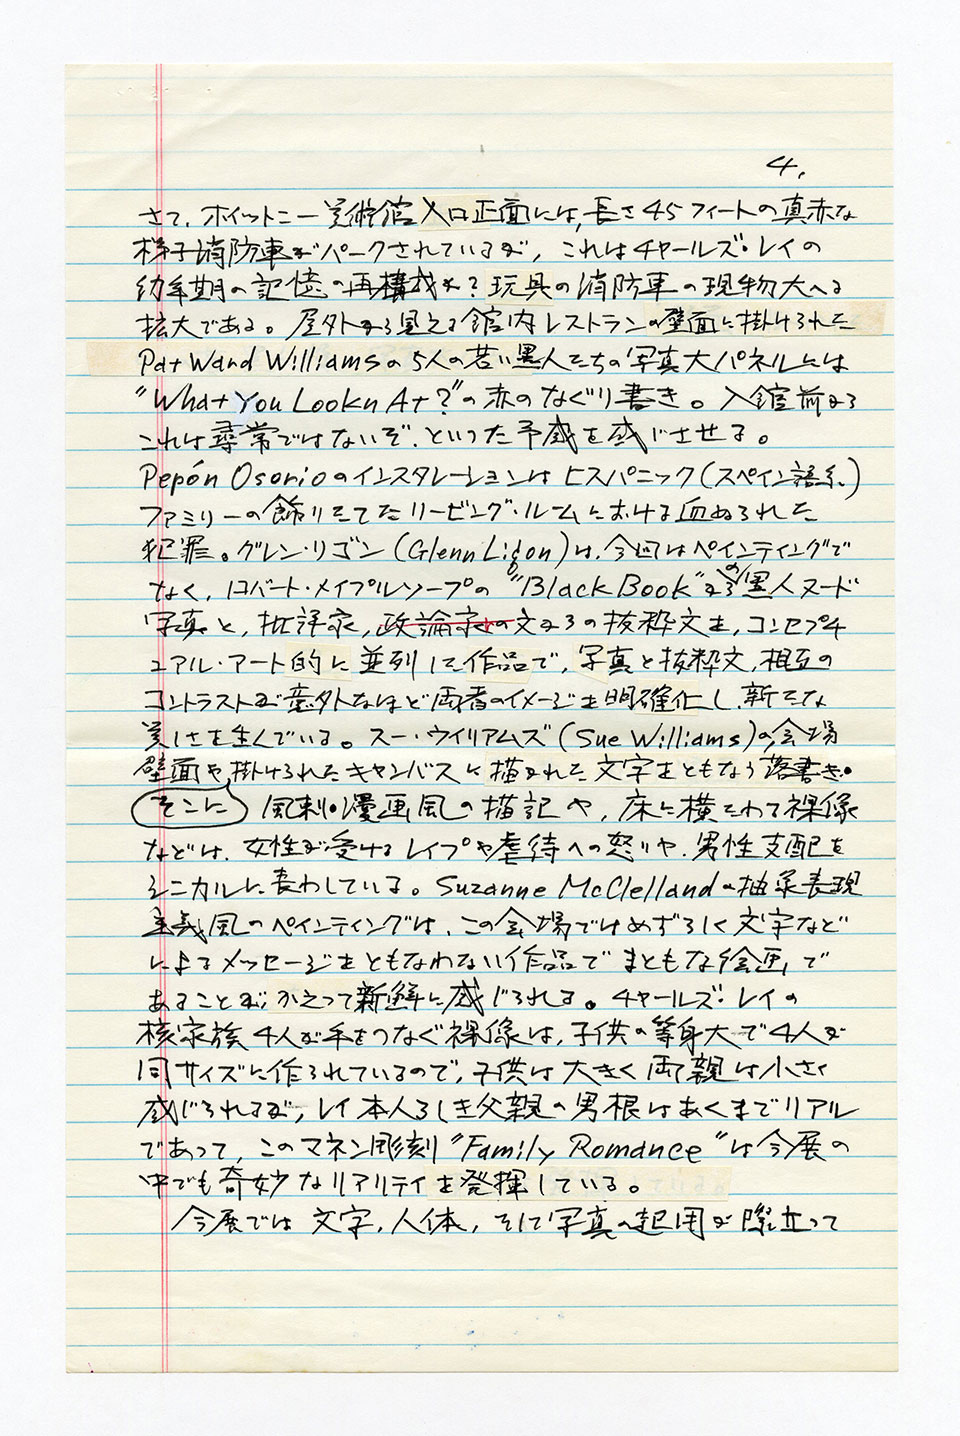 4.
さて、ホイットニー美術館入口正面には、長さ45フィートの真赤な
梯子消防車がパークされているが、これはチャールズ・レイの
幼年期の記憶の再構成か？玩具の消防車の現物大への
拡大である。屋外から見える館内レストランの壁面に掛けられた
Pat Ward Williamsの5人の若い黒人たちの写真大パネルには
"What You Lookn At?"の赤のなぐり書き。入館前から
これは尋常ではないぞ、といった予感を感じさせる。
Pepón Osorioのインスタレーションはヒスパニック(スペイン語系)
ファミリーの飾りたてたリービング・ルームにおける血ぬられた
犯罪。グレン・リゴン(Glenn Ligon)は、今回はペインティングで
なく、ロバート・メイプルソープの"Black Book"からの黒人ヌード
写真と、批評家、政論家の文からの抜粋文を、コンセプチ
ュアル・アート的に並列した作品で、写真と抜粋文、相互の
コントラストが意外なほど両者のイメージを明確化し、新たな
美しさを生んでいる。スー・ウイリアムズ(Sue Williams)の会場
壁面や掛けられたキャンバスに描かれた文字をともなう落書き・
そこに 風刺・漫画風の描記や、床に横たわる裸像
などは、女性が受けるレイプや虐待への怒りや、男性支配を
シニカルに表わしている。Suzanne McClellandの抽象表現
主義風のペインティングは、この会場ではめずらしく文字など
によるメッセージをともなわない作品でまともな絵画で
あることが、かえって新鮮に感じられる。チャールズ・レイの
核家族4人が手をつなぐ裸像は、子供の等身大で4人が
同サイズに作られているので、子供は大きく両親は小さく
感じられるが、レイ本人らしき父親の男根はあくまでリアル
であって、このマネン彫刻"Family Romance"は今展の
中でも奇妙なリアリティを発揮している。
今展では文字、人体、そして写真の起用が際立って